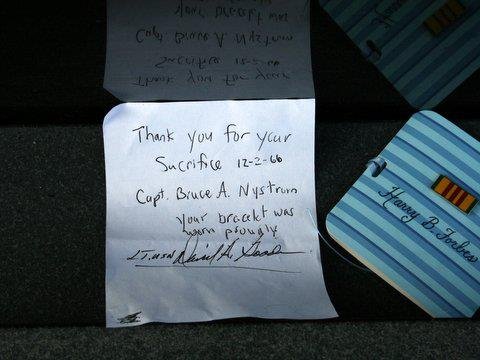 Thank you for your
Sacrifice 12-2-66
Capt. Bruce A. Nystrom
your bracelet was
worn proudly
LT. USN David A.
Harry B. Forbes